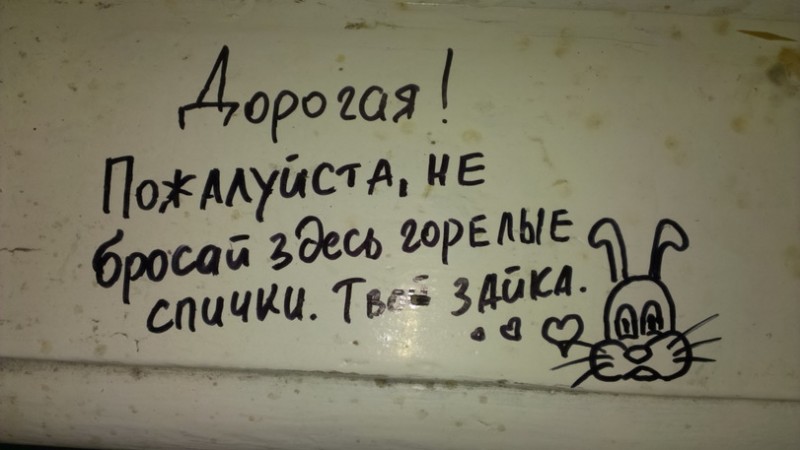 Дорогая!
Пожалуйста, не
бросай здесь горелые
спички. Твой зайка.